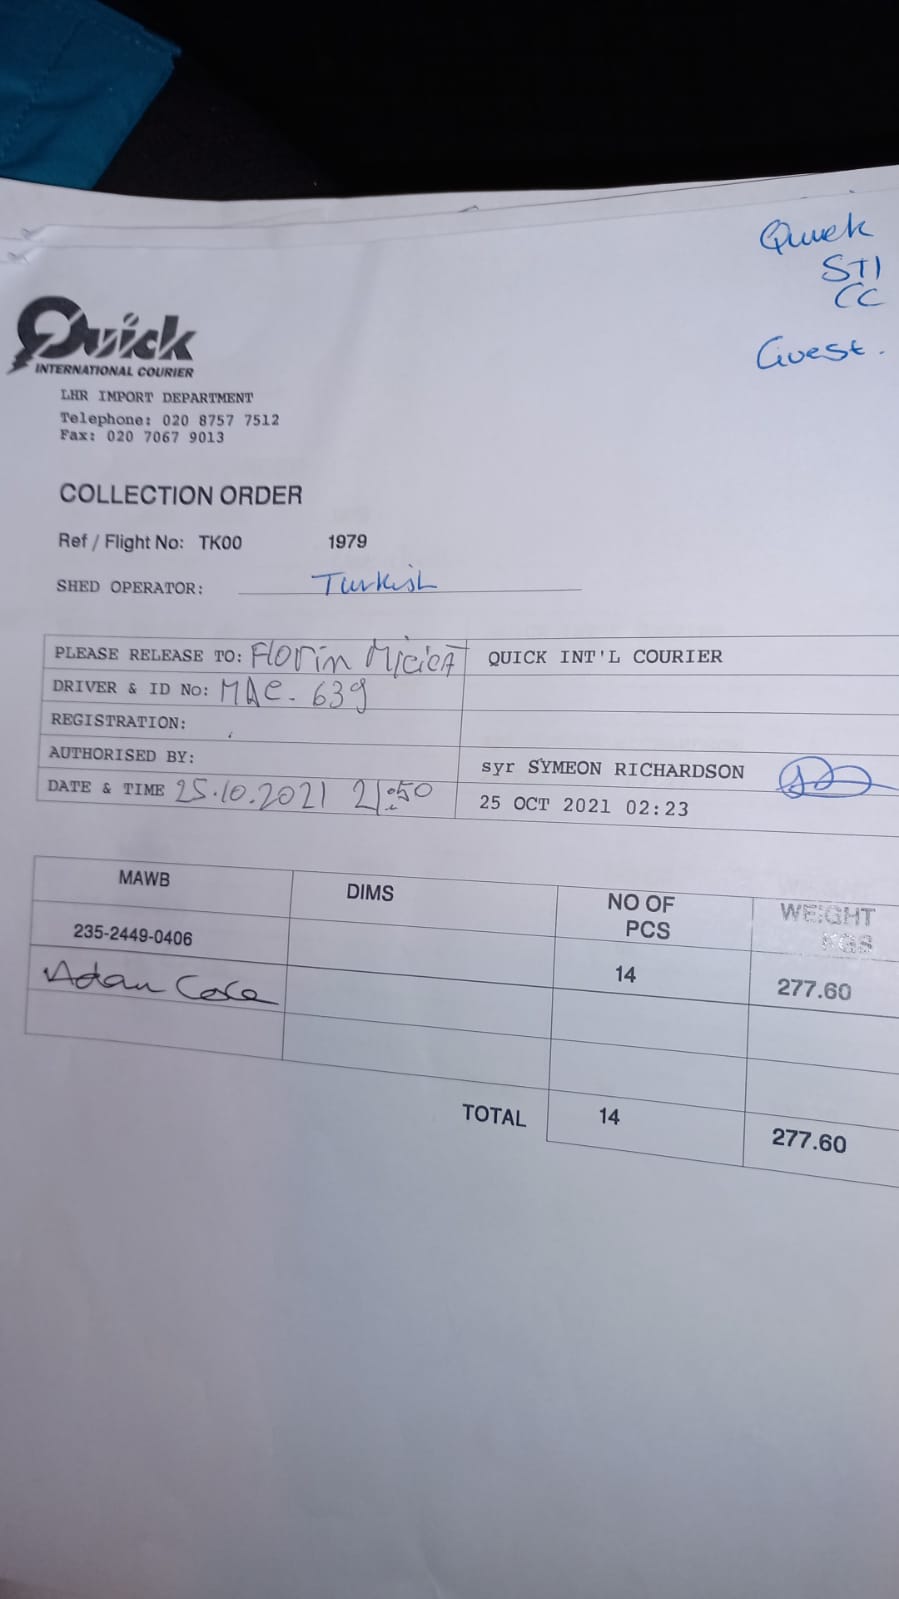 Quick
STI
CC
Guest.
Quick
INTERNATIONAL COURIER
LHR IMPORT DEPARTMENT
Telephone: 020 8757 7512
Fax: 020 7067 9013
COLLECTION ORDER
Ref / Flight No: TK00 1979
SHED OPERATOR: Turkish
PLEASE RELEASE TO: Florin QUICK INT'L COURIER
DRIVER & ID No: MAC-639
REGISTRATION:
AUTHORISED BY: syr SYMEON RICHARDSON
DATE & TIME 25.10.2021 21:50 25 OCT 2021 02:23
MAWB DIMS NO OF PCS WEIGHT KGS
235-2449-0406 14 277.60
Adam
TOTAL 14 277.60